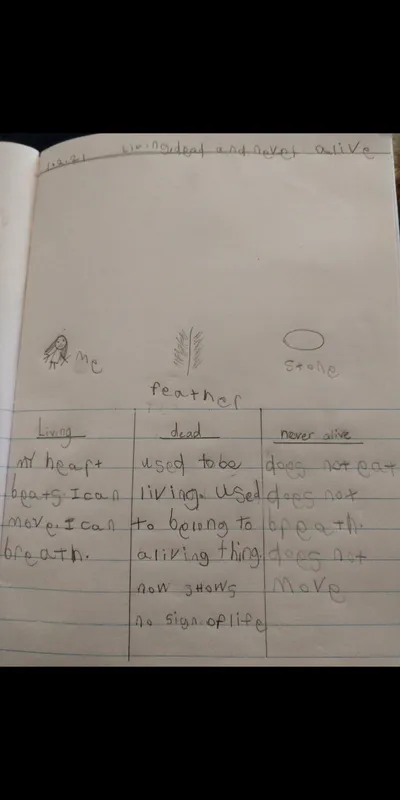 Living, dead and never alive
me
feather
stone
Living
my heart
beats. I can
move. I can
breath.
dead
used to be
living. used
to belong to
a living thing.
now shows
no sign of life
never alive
does not eat
does not
breath.
does not
move